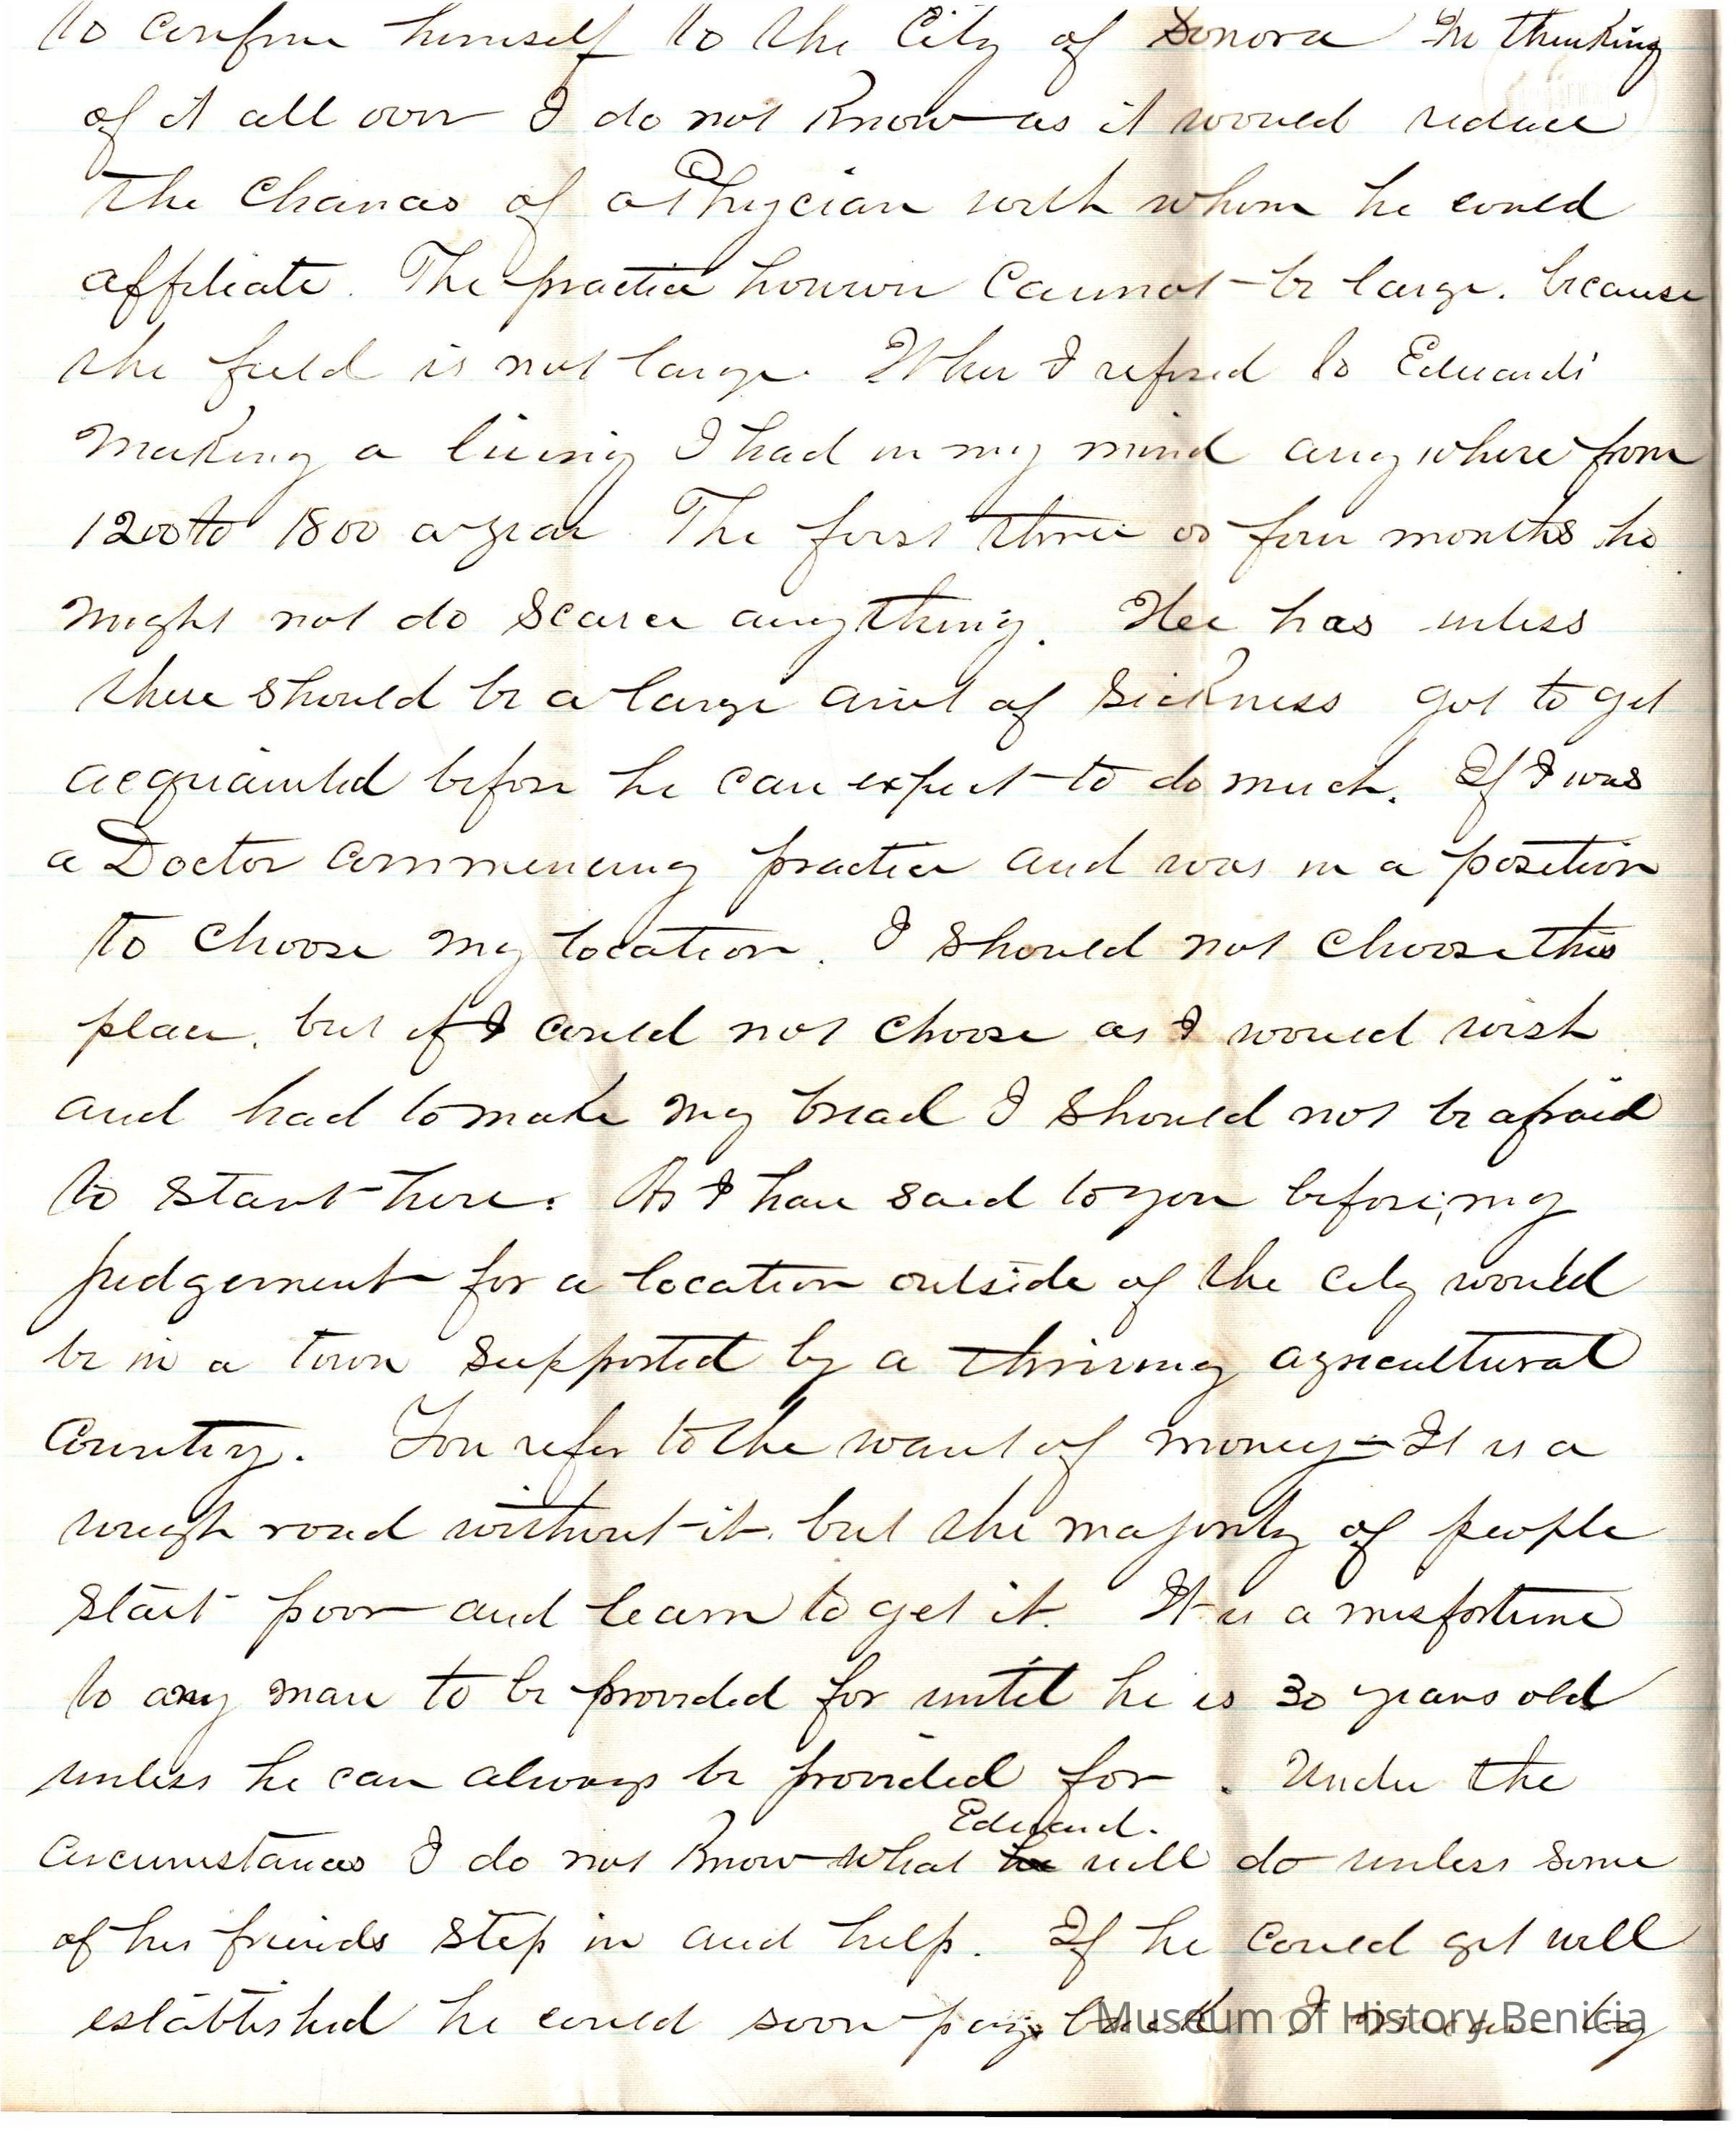 to confine himself to the City of Sonora In thinking
of it all over I do not Know as it would reduce
the chances of a Phycian with whom he could
affiliate. The practice however cannot be large. because
the field is not large. When I refered to Edwards
Making a living I had in my mind any where from
1200 to 1800 a year The first three or four months he
might not do scarce anything. Hee has unless
there should be a large amt of sickness got to get
acquainted before he can expect to do much. If I was
a Doctor commencing practice and was in a position
to choose my location. I should not choose this
place. but if I could not choose as I would wish
and had to make my bread I should not be afraid
to start here. As I have said to you before, my
judgement for a location outside of the city would
be in a town supported by a thriving agricultural
Country. You refer to the want of money - It is a
rough road without it. but the majority of people
start poor and learn to get it. It is a misfortune
to any man to be provided for until he is 30 years old
unless he can always be provided for. Under the
Edward.
Circumstances I do not Know what he will do unless some
of his friends step in and help. If he could get well
established he could soon pay back I mean by
Museum of History Benicia